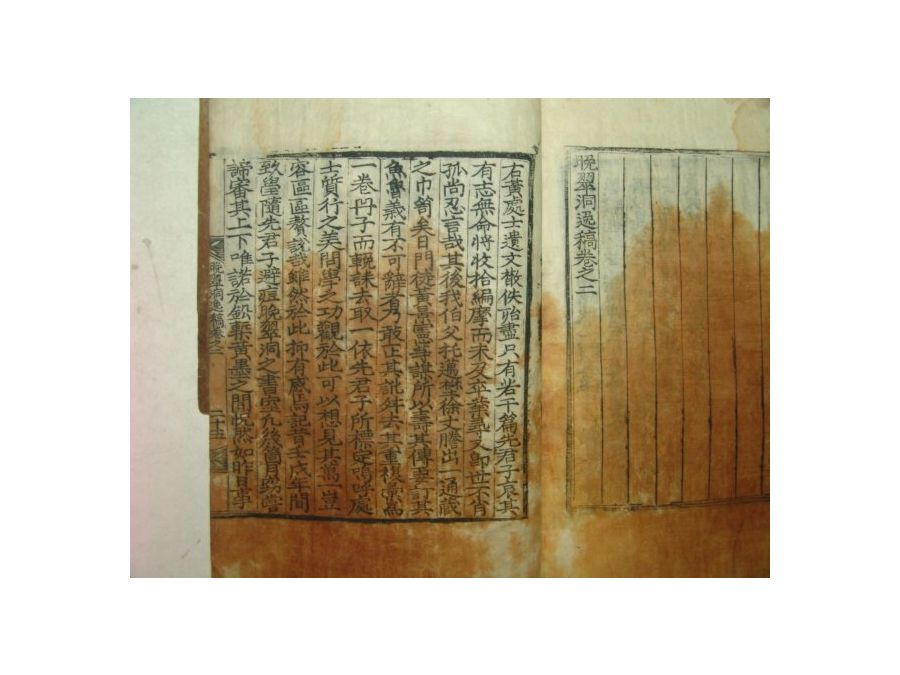 晩翠洞逸稿卷之二
右黃處士遺文散佚殆盡只有若干篇先君子哀其
有志無命將收拾編摩而未及卒業巫又即世不肖
孤尚忍言哉其後我伯父托邁埜徐丈謄出一通藏
之巾笥矣日門從黃憲壽諱所以壽其傳妻訂其
魚魯義有不可辭者乃敢正其訛舛去其重複彙爲
一卷丹子而輓誄去取一依先君子所標定嗚呼處
士質行之美問學之功觀於此可以想見其萬一豈
容區區贅說哉雖然於此抑有感焉記昔壬戌年間
致瑩隨先君子避痘晩翠洞之書室凡後箇月
諦審其上下唯諾於鉛槧黃墨之間怳然如昨日事
晩翠洞逸稿卷之二 二十五